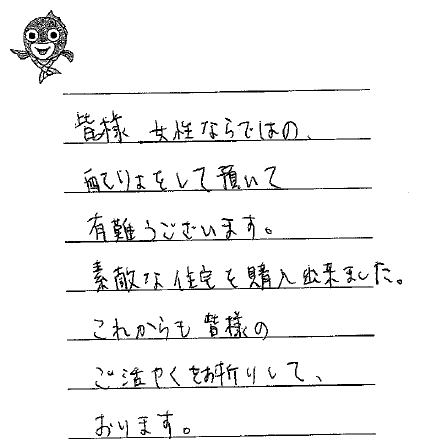 皆様 女性ならではの、
配りょをして頂いて
有難うございます。
素敵な住宅を購入出来ました。
これからも皆様の
ご活やくをお祈りして、
おります。